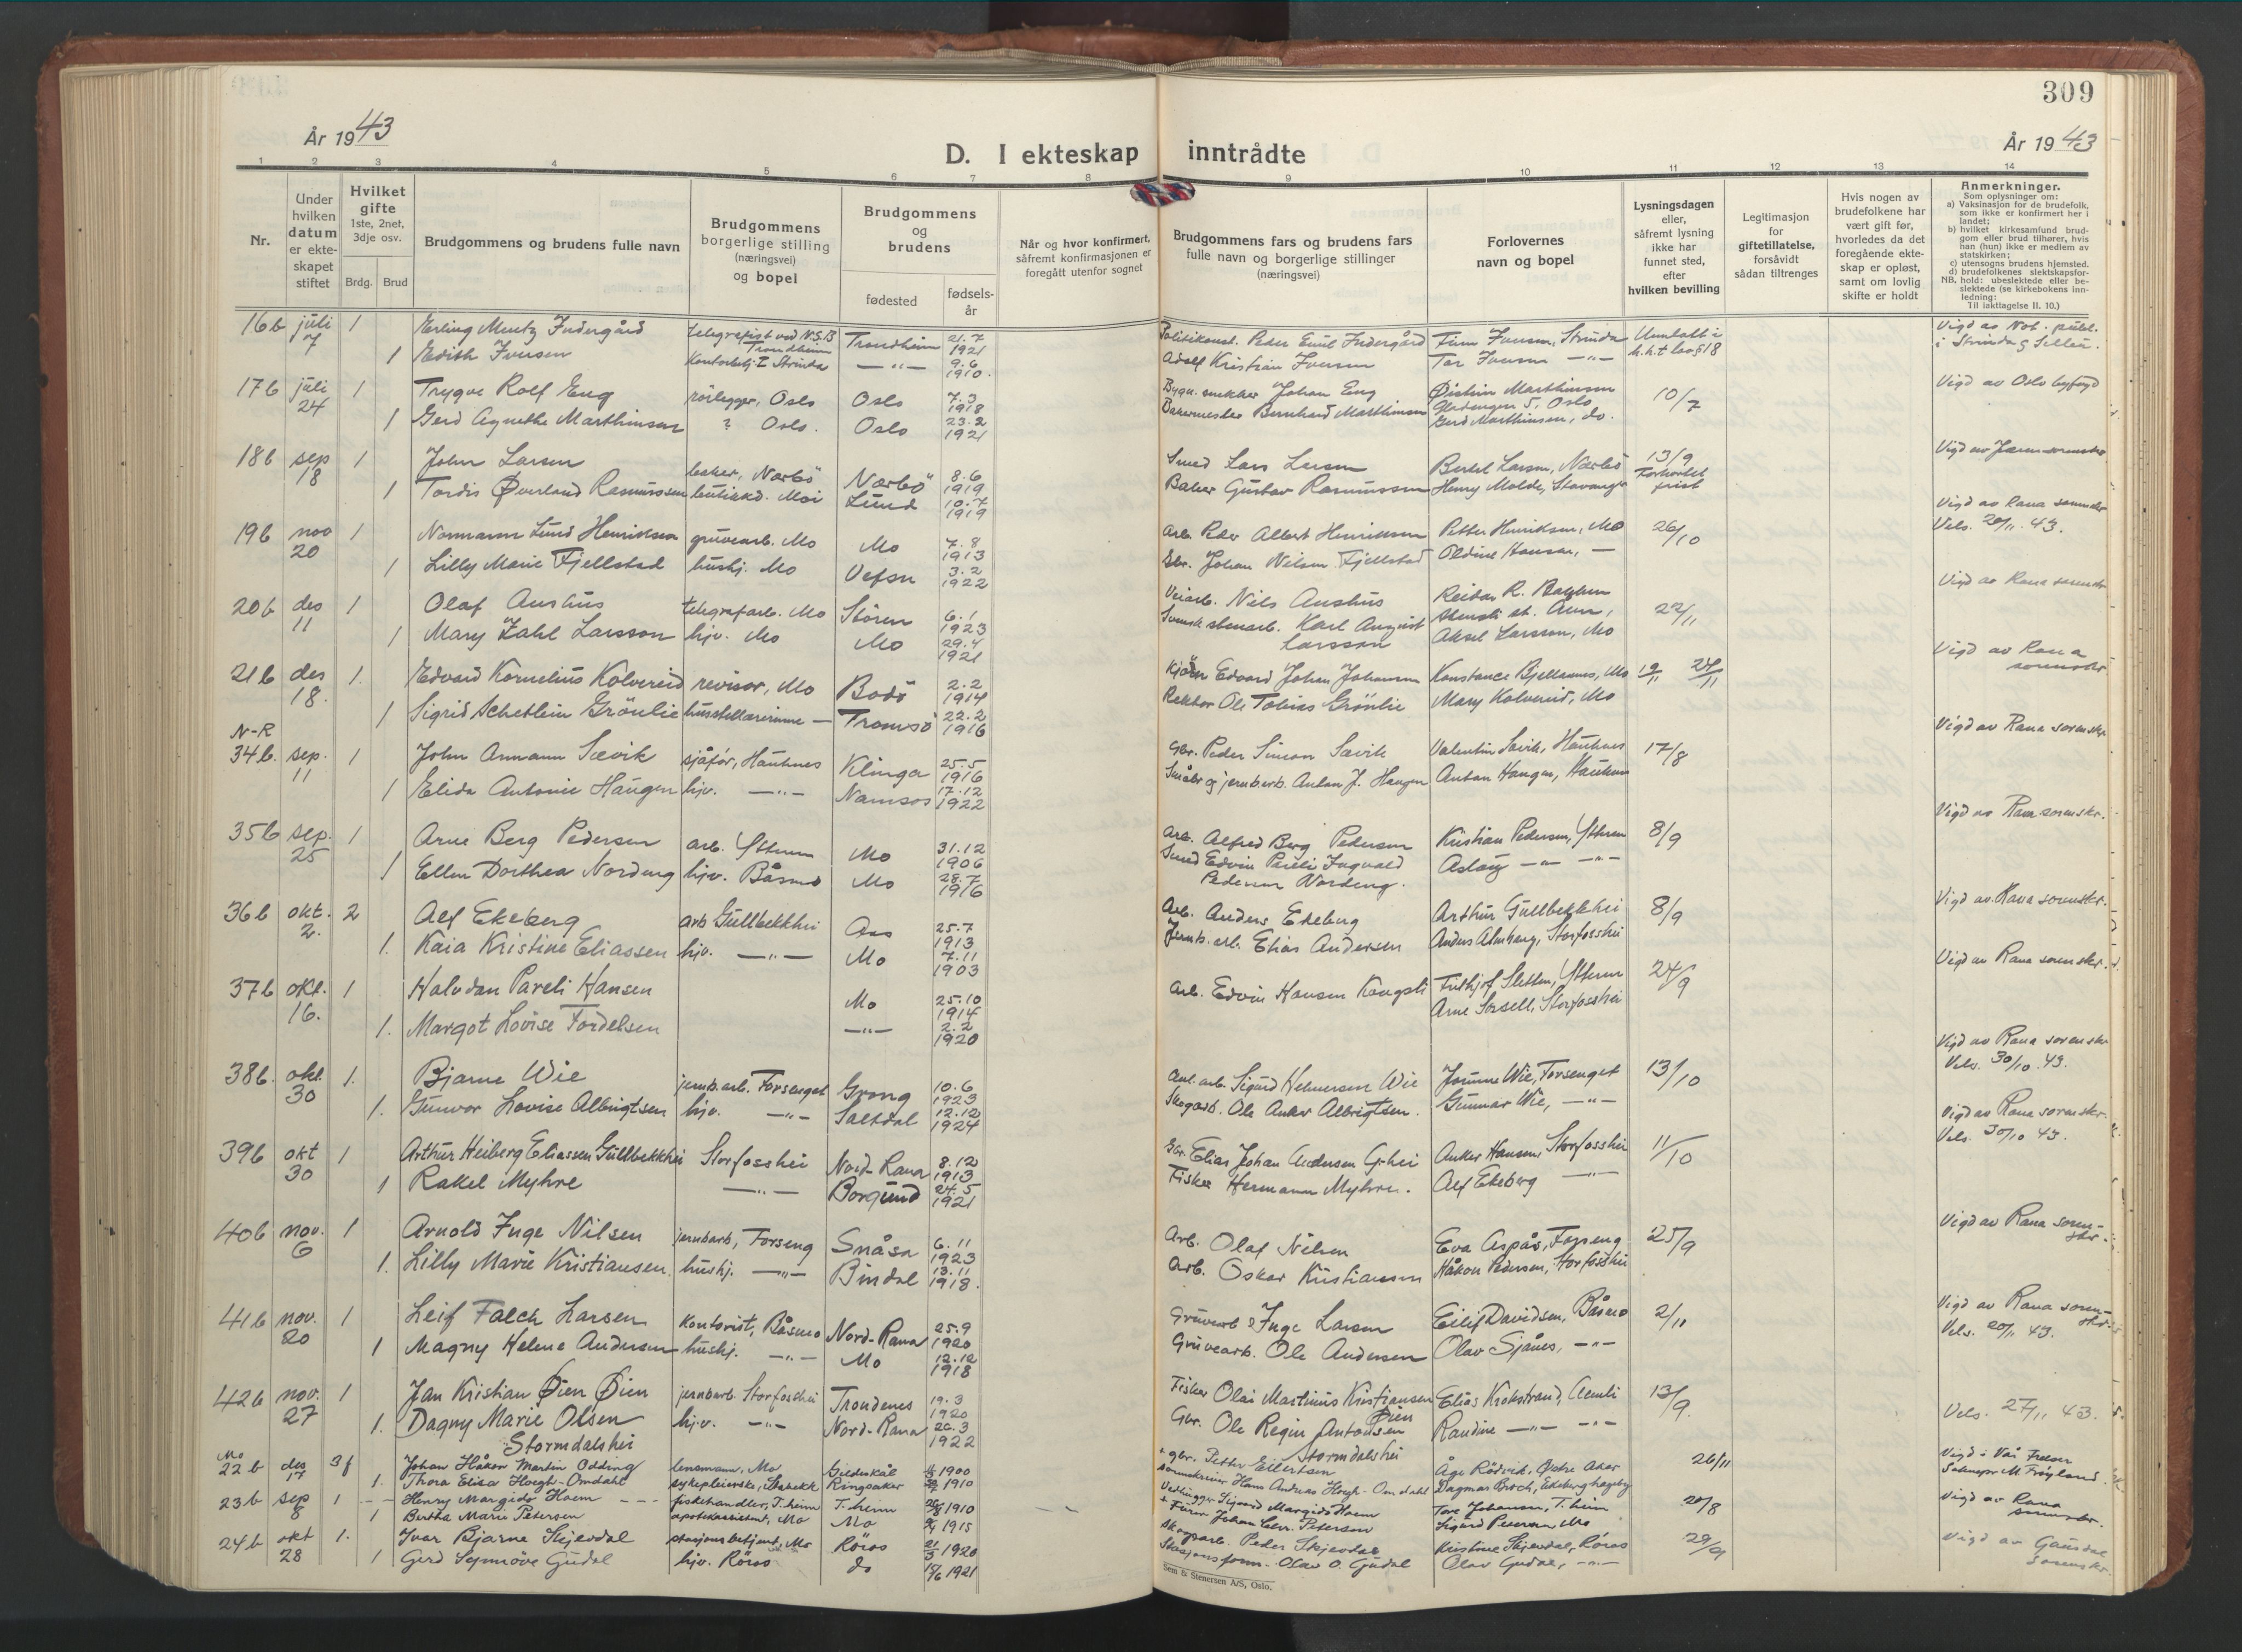 309
År 1943
År 1943
D. I ekteskap inntrådte
1 2 3 4 5 6 7 8 9 10 11 12 13 14
Nr.
Under hvilken datum er ekte-skapet stiftet
Hvilket gifte
1ste, 2net, 3dje osv.
Brdg. Brud
Brudgommens og brudens fulle navn
Brudgommens borgerlige stilling (næringsvei) og bopel
Brudgommens og brudens
fødested
fødsels-år
Når og hvor konfirmert, såfremt konfirmasjonen er foregått utenfor sognet
Brudgommens fars og brudens fars fulle navn og borgerlige stillinger (næringsvei)
Forlovernes navn og bopel
Lysningsdagen eller, såfremt lysning ikke har funnet sted, efter hvilken bevilling
Legitimasjon for giftetillatelse, forsåvidt sådan tiltrenges
Hvis nogen av brudefolkene har vært gift før, hvorledes da det foregående ekte-skap er opløst, samt om lovlig skifte er holdt
Anmerkninger.
Som oplysninger om:
a) Vaksinasjon for de brudefolk, som ikke er konfirmert her i landet;
b) hvilket kirkesamfund brud-gom eller brud tilhører, hvis han (hun) ikke er medlem av statskirken;
c) utensogns brudens hjemsted.
d) brudefolkenes slektskapsfor-hold: ubeslektede eller be-slektede (se kirkebokens inn-ledning:
NB. Til iakttagelse II. 10.)
16b juli 7 1 Erling Mentz Indergård telegrafist ved N.S.B Trondheim Trondheim 21.7 1921 Peder Emil Indergård Finn Iversen, Strinda Unnlatt i Vigd av Not. publ.
1 Edith Iversen Strinda —"— 9.6 1910. Adolf Kristian Iversen Tor Iversen —"— i Strinda
17b juli 24 1 Trygve Rolf Eng rörlegger, Oslo Oslo 7.3 1918 Johan Eng Øistein Marthinsen 10/7 Vigd av Oslo byfogd
1 Gerd Agnethe Marthinsen ? Oslo. Oslo 23.2 1921 Bakermester Bernhard Marthinsen Gerd Marthinsen, do.
18b sep 18 1 John Larsen baker, Nærbö Nærbö 8.6 1919 Smed Lars Larsen Larsen, Nærbö 13/9 Vigd av Jæren
1 Tordis Överland Rasmussen butikkd. Moi Lund 10.7 1919 Baker Gustav Rasmussen Henry Molde, Stavanger Forkortet frist
19b nov 20 1 Normann Lund Henriksen gruvearb. Mo Mo 7.8 1913 Arb. Peder Albert Henriksen Petter Henriksen, Mo 26/10 Vigd av Rana Vels. 20/11.43.
1 Lilly Marie Fjellstad hushj. Mo Vefsn 3.2 1922 Johan Nilsen Fjellstad Oldine Hansen, —
20b des 11 1 Olaf Aushus telegrafarb. Mo Stören 6.1 1923 Veiarb. Nils Aushus Reidar R. 22/11 Vigd av Rana
1 Mary Zahl Larsson hjv. Mo Mo 29.4 1921 Svensk stenarb. Karl August Larsson Aksel Larsson, Mo
21b des 18. 1. Edvard Kornelius Kolvereid revisor, Mo Bodö 2.2 1914 Edvard Johan Johansen Konstance Bjellånes, Mo Vigd av Rana
1 Sigrid Schetlein Grönlie Tromsö 22.2 1916 Rektor Ole Tobias Grönlie Mary Kolvereid, Mo
N-R
34b. sep. 11 1 John Armann Sævik sjåför, Hauknes Klinga 25.5 1916 Gbr. Peder Simon Sævik Valentin Sævik, Hauknes 17/8 Vigd av Rana sorenskr.
1 Elida Antonie Haugen hjv. —"— Namsos 17.12 1922 Småbr og jernb.arb. Anton J. Haugen Anton Haugen, Hauknes
35b sep. 25 1 Arne Berg Pedersen arb. Ytteren Mo 31.12 1906 Arb. Alfred Berg Pedersen Kristian Pedersen, Ytteren 8/9 Vigd av Rana sorenskr.
1 Ellen Dorthea Nordeng hjv. Båsmo Mo 28.7 1916 Smed Edvin Pareli Ingvald Pedersen Nordeng. Aslaug —"— —"—
36b okt. 2. 2 Alf Ekeberg arb Gullbekkhei 25.7 1913 Arb. Anders Ekeberg Arthur Gullbekkhei 8/9 Vigd av Rana sorenskr.
1. Kaia Kristine Eliassen hjv. —"— Mo 7.11 1903 Jernb. arb. Elias Andersen Anders Storfosshei
37b okt. 16. 1 Halvdan Pareli Hansen Mo 25.10 1914 Arb. Edvin Hansen Kongsli Fridhjof Sletten, Ytteren 24/9 Vigd av Rana sorenskr.
1. Margot Lovise Fordelsen —"— 2.2 1920 Arne Storfosshei
38b. okt. 30 1. Bjarne Wie jernb.arb. Forsenget Grong 10.6 1923 Sigurd Helmersen Wie Wie, Forsenget 13/10 Vigd av Rana sorenskr Vels. 30/10.43.
1. Gunvor Lovise Albrigtsen hjv. —"— Saltdal 12.12 1924 Skogarb. Ole Anker Albrigtsen. Gunnar Wie, —"—
39b okt 30 1 Arthur Heiberg Eliassen Gullbekkhei Storfosshei Nord-Rana 8.12 1913 Gbr. Elias Johan Andersen G-hei Anker Hansen, Storfosshei 11/10 Vigd av Rana sorenskr. Vels. 30/10 43.
1 Rakel Myhre —"— Borgund 24.5 1921 Fisker Hermann Myhre. Alf Ekeberg —"—
40b nov. 6 1 Arnold Inge Nilsen jernbarb, Forseng Snåsa 6.11 1923 Arb. Olaf Nilsen Eva Aspås, Forseng 25/9 Vigd av Rana soren-skr.
1. Lilly Marie Kristiansen hushj. —"— Bindal 13.11 1918. Arb. Oskar Kristiansen Håkon Pedersen, Storfosshei
41b nov. 20 1 Leif Falch Larsen Kontorist, Båsmo Nord-Rana 25.9 1920 Gruvearb Inge Larsen Eilif Davidsen, Båsmo 2/11 Vigd av Rana soren-skr. Vels. 20/11 43.
1 Magny Helene Andersen hushj. —"— Mo 12.12 1918 Gruvearb. Ole Andersen Olav Sjånes, —"—
42b nov. 27 1 Jan Kristian Öien Öien jernbarb. Storfosshei Trondenes 19.3 1920 Fisker Olai Martinus Kristjansen Öien Elias Krokstrand, 13/9. Vels. 27/11 43.
1. Dagny Marie Olsen Stormdalshei hjv. —"— Nord-Rana 20.3 1922 Gbr. Ole Regin Antonsen Stormdalshei Randine —"— —"—
Mo
22b des 17 3f Johan Håkon Martin Odding lensmann, Mo Gildeskål 1900 gbr. Petter Eilertsen Åge Rödvik, Østre Aker 26/11 Vigd i Vår Frelser
1. Thora Elisa Hoegh-Omdahl sykepleierske, Ringsaker 1910 Sorenskriver Hans Andreas Hoegh-Omdahl Dagmar Broch, Ekeberghagby
23b sep 8 1 Henry Margido Hoem fiskehandler, T.heim T.heim 1910 Sigvard Margido Hoem Tor Johansen, T.heim 20/8 Vigd av Rana
1 Bertha Marie Petersen apotekassistent, Mo Mo 1915 Johan Chr. Petersen Sigurd Petersen Mo
24b okt 28 1. Ivar Bjarne Skjevdal stasjonsbetjent, Mo Röros 1920 Skogsarb. Peder Skjevdal Kristine Skjevdal, Röros 29/9 Vigd av Gauldal sorenskr.
1 Gerd Synnöve Gudal hjv. Röros do 1921 Stasjonsform. Olav O. Gudal Olav Gudal, —"—
Sem & Stenersen A/S, Oslo.